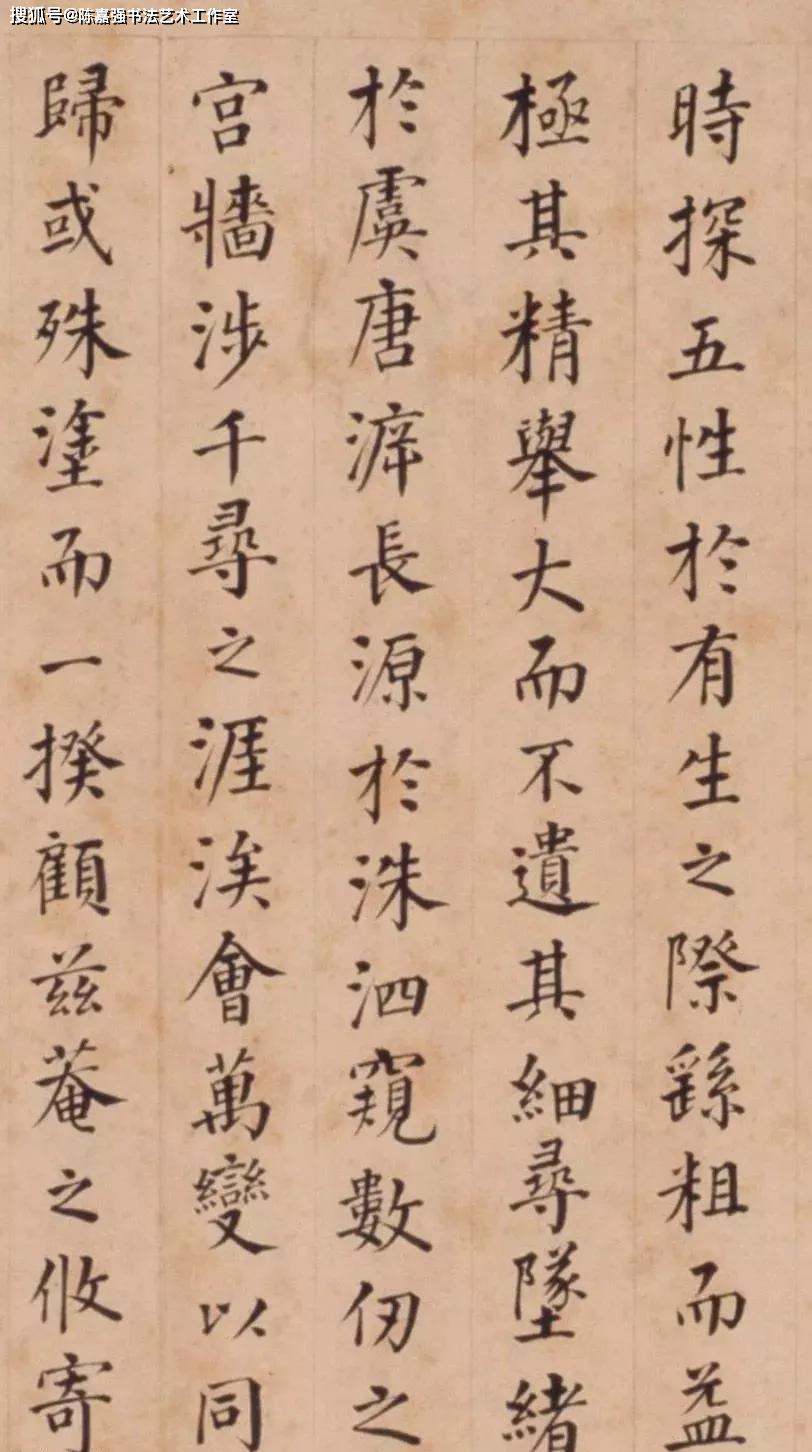 搜狐号@陈嘉强书法艺术工作室
時探五性於有生之際繇粗而益
極其精舉大而不遺其細尋墜緒
於虞唐泝長源於洙泗窺數仞之
宮牆涉千尋之涯涘會萬變以同
歸或殊塗而一揆顧茲菴之攸寄